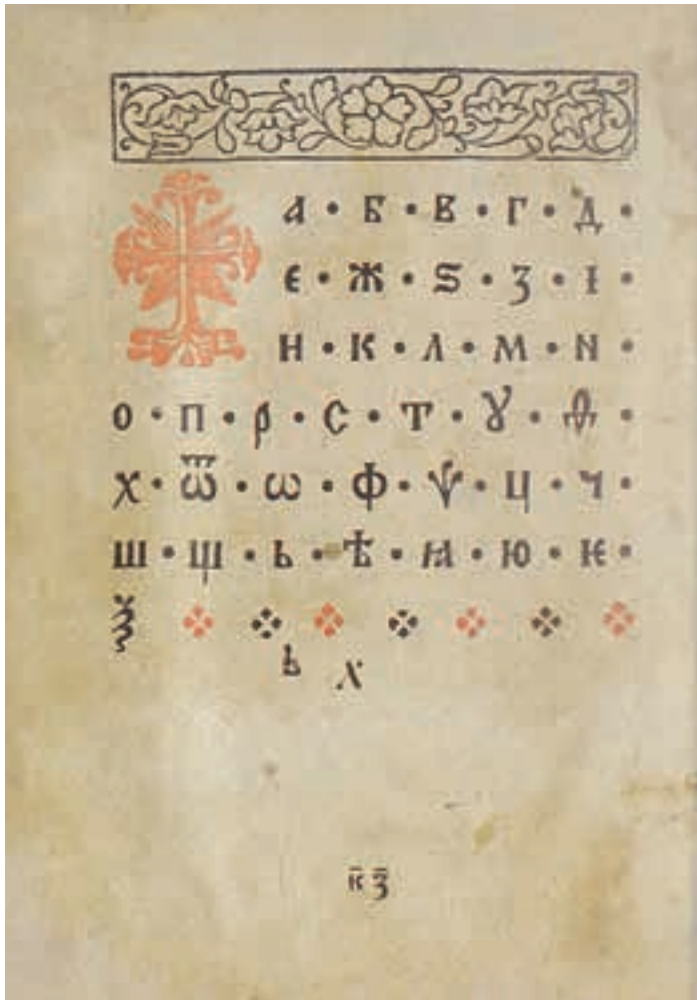 а • б • в • г • д •
є • ж • ѕ • з • і •
н • к • л • м • н •
о • п • р • с • т • ꙋ • ѳ •
х • ѿ • ѡ • ф • ѱ • ц • ч •
ш • щ • ь • ѣ • ꙗ • ю • ѥ •
ѯ
ь х
к҃ з҃